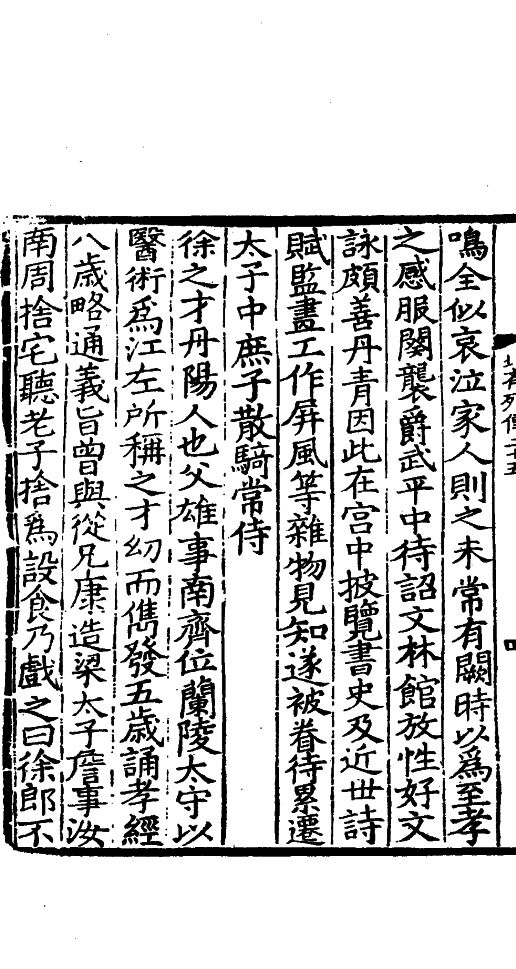 鳴全似哀泣家人則之未常有闕時以爲至孝
之感服闋襲爵武平中待詔文林館放性好文
詠頗善丹青因此在宫中披覽書史及近世詩
賦監畫工作屏風等雜物見知遂被眷待累遷
太子中庶子散騎常侍
徐之才丹陽人也父雄事南齊位蘭陵太守以
醫術爲江左所稱之才幼而儁發五歲誦孝經
八歲略通義旨曾與從兄康造梁太子詹事汝
南周捨宅聽老子捨爲設食乃戲之曰徐郎不